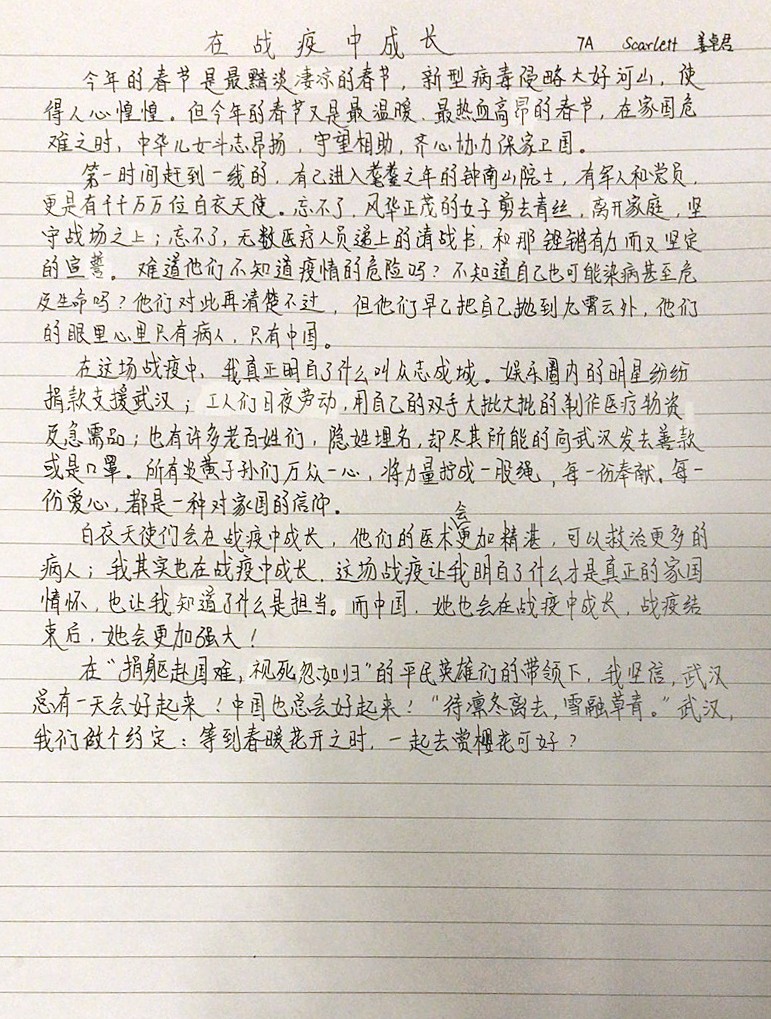 在战疫中成长 7A Scarlett 姜卓君
今年的春节是最黯淡凄凉的春节，新型病毒侵略大好河山，使
得人心惶惶。但今年的春节又是最温暖、最热血高昂的春节，在家国危
难之时，中华儿女斗志昂扬，守望相助，齐心协力保家卫国。
第一时间赶到一线的，有已进入耄耋之年的钟南山院士，有军人和党员，
更是有千千万万位白衣天使。忘不了，风华正茂的女子剪去青丝，离开家庭，坚
守战场之上；忘不了，无数医疗人员递上的请战书，和那铿锵有力而又坚定
的宣誓。难道他们不知道疫情的危险吗？不知道自己也可能染病甚至危
及生命吗？他们对此再清楚不过，但他们早已把自己抛到九霄云外，他们
的眼里心里只有病人，只有中国。
在这场战疫中，我真正明白了什么叫众志成城。娱乐圈内的明星纷纷
捐款支援武汉；工人们日夜劳动，用自己的双手大批大批的制作医疗物资
及急需品；也有许多老百姓们，隐姓埋名，却尽其所能的向武汉发去善款
或是口罩。所有炎黄子孙们万众一心，将力量拧成一股绳，每一份奉献，每一
份爱心，都是一种对家国的信仰。
白衣天使们会在战疫中成长，他们的医术会更加精湛，可以救治更多的
病人；我其实也在战疫中成长，这场战疫让我明白了什么才是真正的家国
情怀，也让我知道了什么是担当。而中国，她也会在战疫中成长，战疫结
束后，她会更加强大！
在“捐躯赴国难，视死忽如归”的平民英雄们的带领下，我坚信，武汉
总有一天会好起来！中国也总会好起来！“待凛冬离去，雪融草青。”武汉，
我们做个约定：等到春暖花开之时，一起去赏樱花可好？